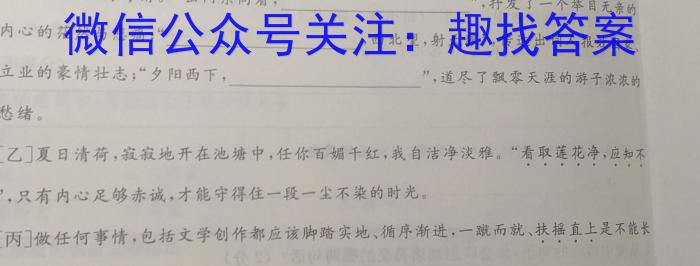 抒发了一个举目无亲的
微信公众号关注：趣找答案
内心的
立业的豪情壮志；“夕阳西下，”，道尽了飘零天涯的游子浓浓的
愁绪。
[乙]夏日清荷，寂寂地开在池塘中，任你百媚千红，我自洁净淡雅。“看取莲花净，应知不
”，只有内心足够赤诚，才能守得住一段一尘不染的时光。
[丙]做任何事情，包括文学创作都应该脚踏实地、循序渐进，一蹴而就、扶摇直上是不能长